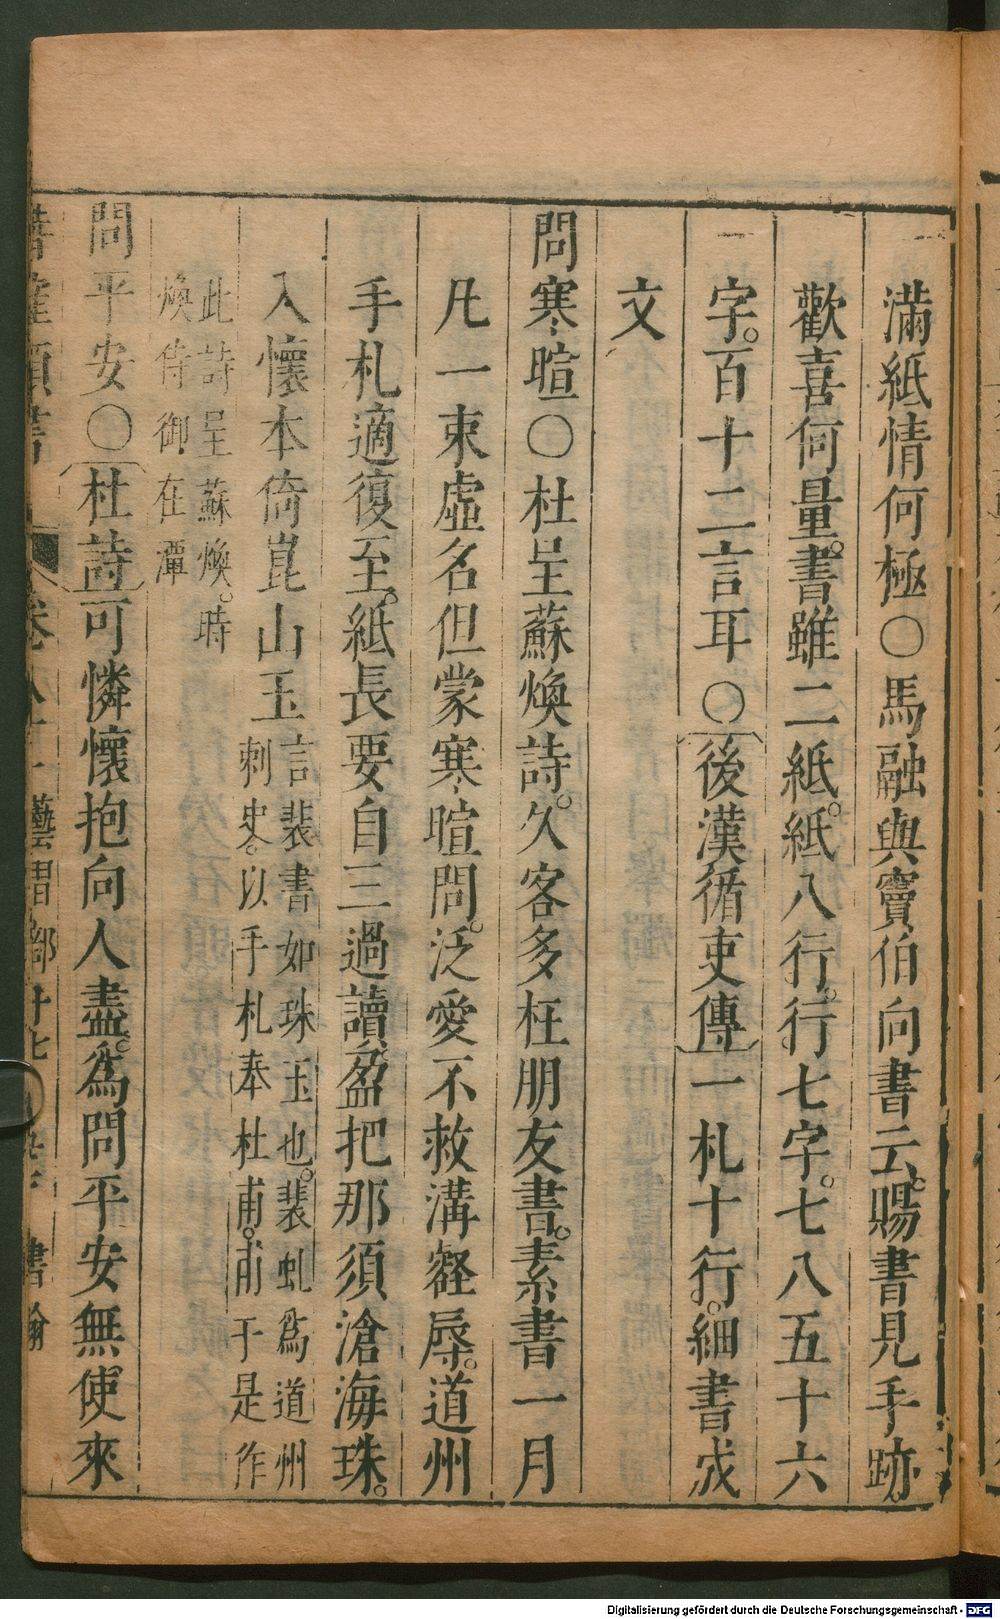 滿紙情何極〇馬融與竇伯向書云賜書見手跡。
歡喜何量。書雖二紙。紙八行。行七字。七八五十六
字。百十二言耳〇後漢循吏傳一札十行。細書成
文
問寒暄〇杜呈蘇煥詩。久客多枉朋友書。素書一月
凡一束虛名但蒙寒暄問。泛愛不救溝壑辱。道州
手札適復至。紙長要自三過讀盈把那須滄海珠。
入懷本倚崑山玉言裴書如珠玉也。裴虬爲道州
刺史。以手札奉杜甫。甫于是作
此詩呈蘇煥。時
煥侍御在潭
問平安〇杜詩可憐懷抱向人盡。爲問平安無使來
卷八十一 藝習部廿七 書翰
Digitalisierung gefördert durch die Deutsche Forschungsgemeinschaft - DFG